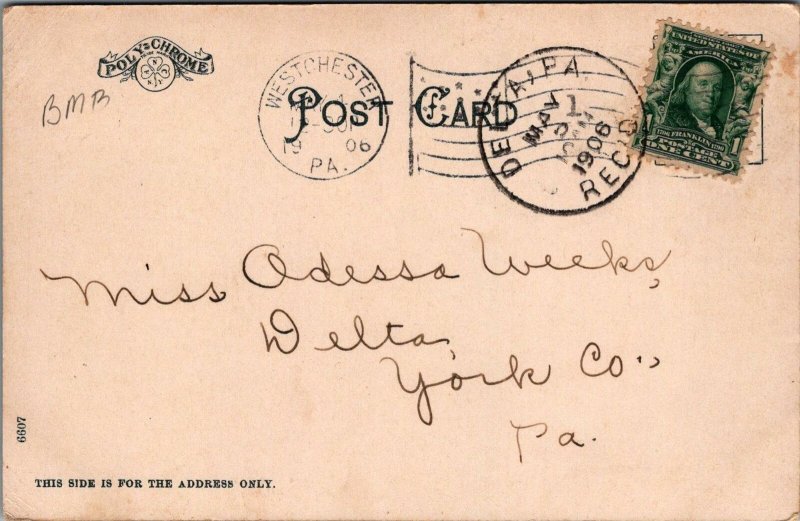 POLY-CHROME
BMB
WESTCHESTER
19 06
PA.
POST CARD
DELTA, PA.
MAY
1
1906
REC'D
UNITED STATES OF AMERICA
1706 FRANKLIN 1790
1 POSTAGE 1
ONE CENT
Miss Odessa Weeks,
Delta,
York Co.,
Pa.
6607
THIS SIDE IS FOR THE ADDRESS ONLY.